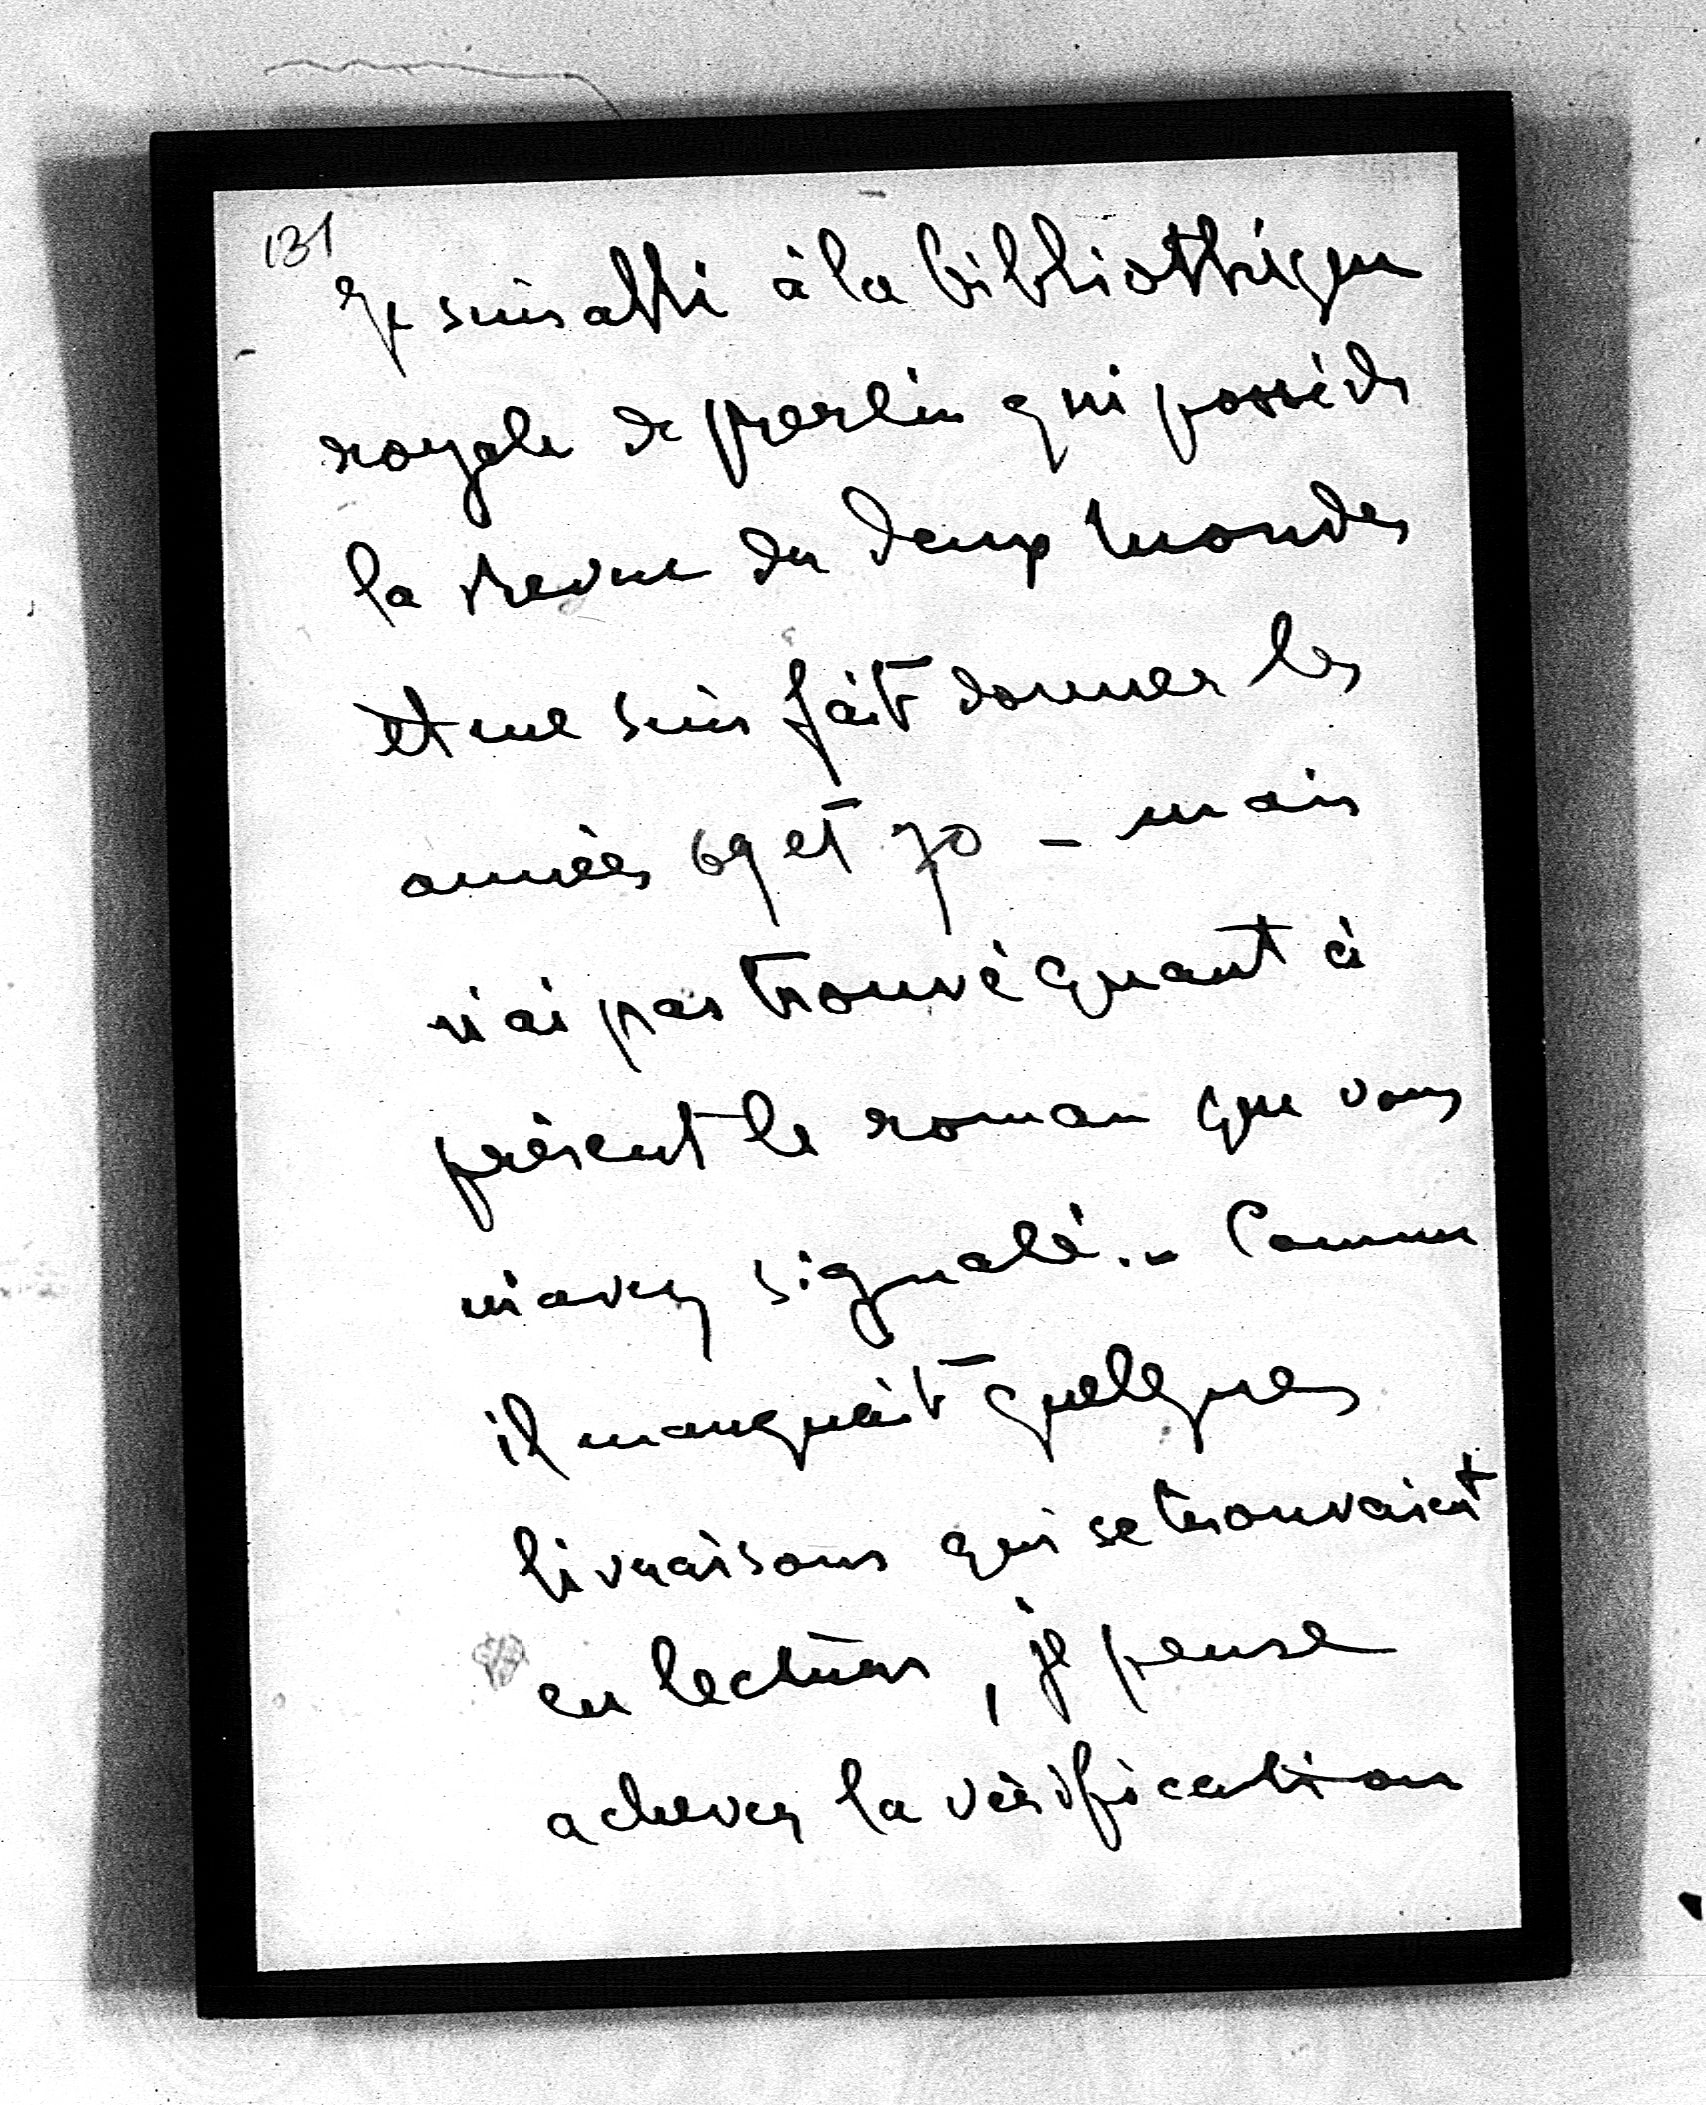 131
Je suis allé à la bibliothèque
royale de Berlin qui possède
la Revue des deux Mondes
et me suis fait donner les
années 69 et 70 – mais
n'ai pas trouvé quant à
présent le roman que vous
m'avez signalé. – Comme
il manquait quelques
livraisons qui se trouvaient
en lecture, je pense
achever la vérification